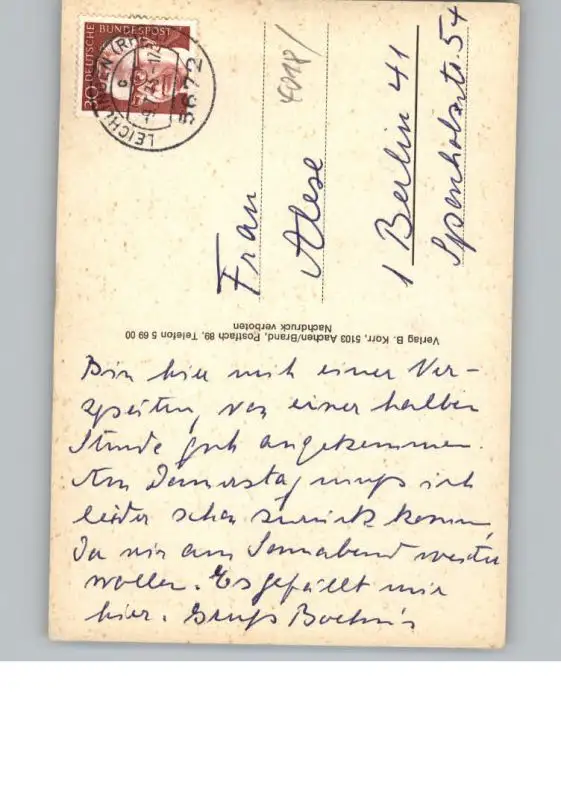 Bin hier mit einer Ver-
späten, von einer halben
Stunde gut angekommen.
Am Donnerstag muß ich
leider schon zurück kommen,
da wir am Sonnabend weiter
wollen. Es gefällt mir
hier. Gruß
Verlag B. Korr, 5103 Aachen/Brand, Postfach 89, Telefon 5 69 00
Nachdruck verboten
Frau
1 Berlin 41
DEUTSCHE BUNDESPOST
30
LEICHLINGEN (RH
5672